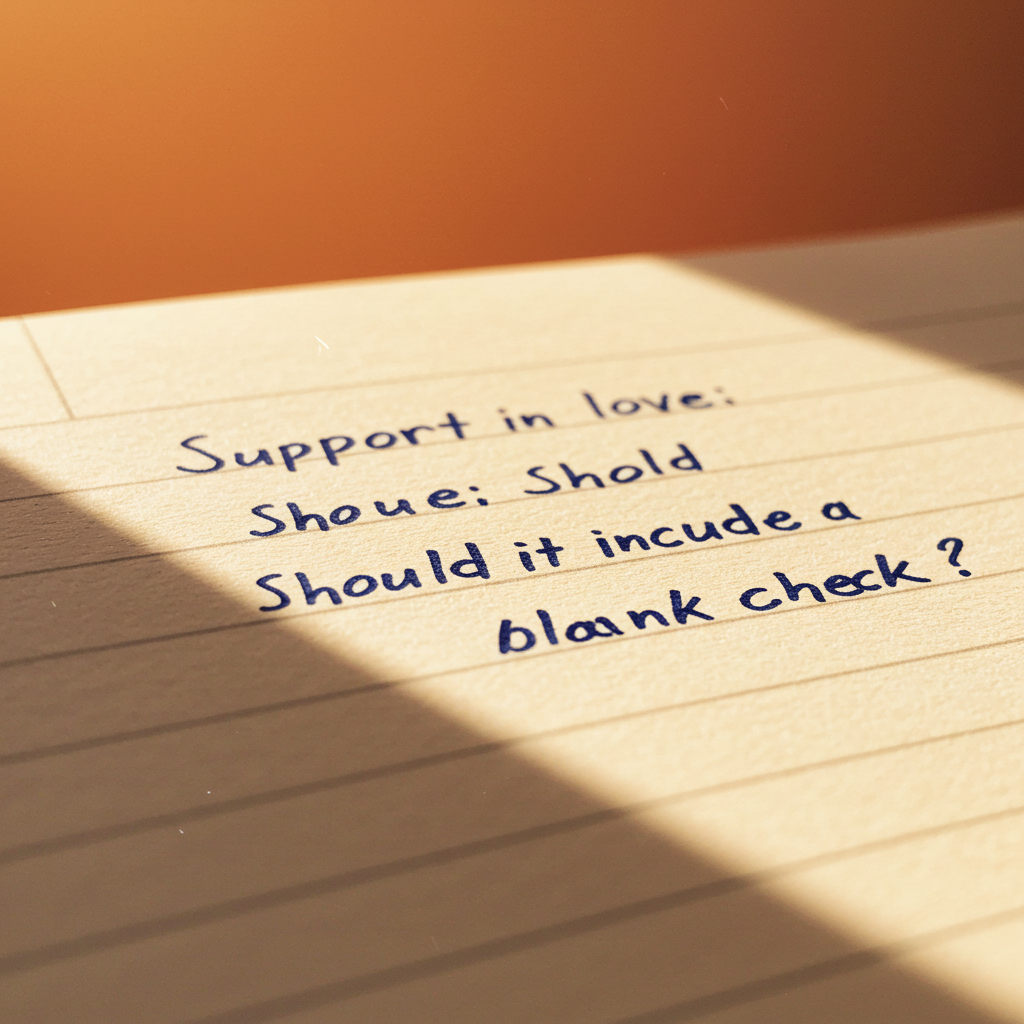 Support in love:
Shoue: Shold
Should it incude a
blaank check?